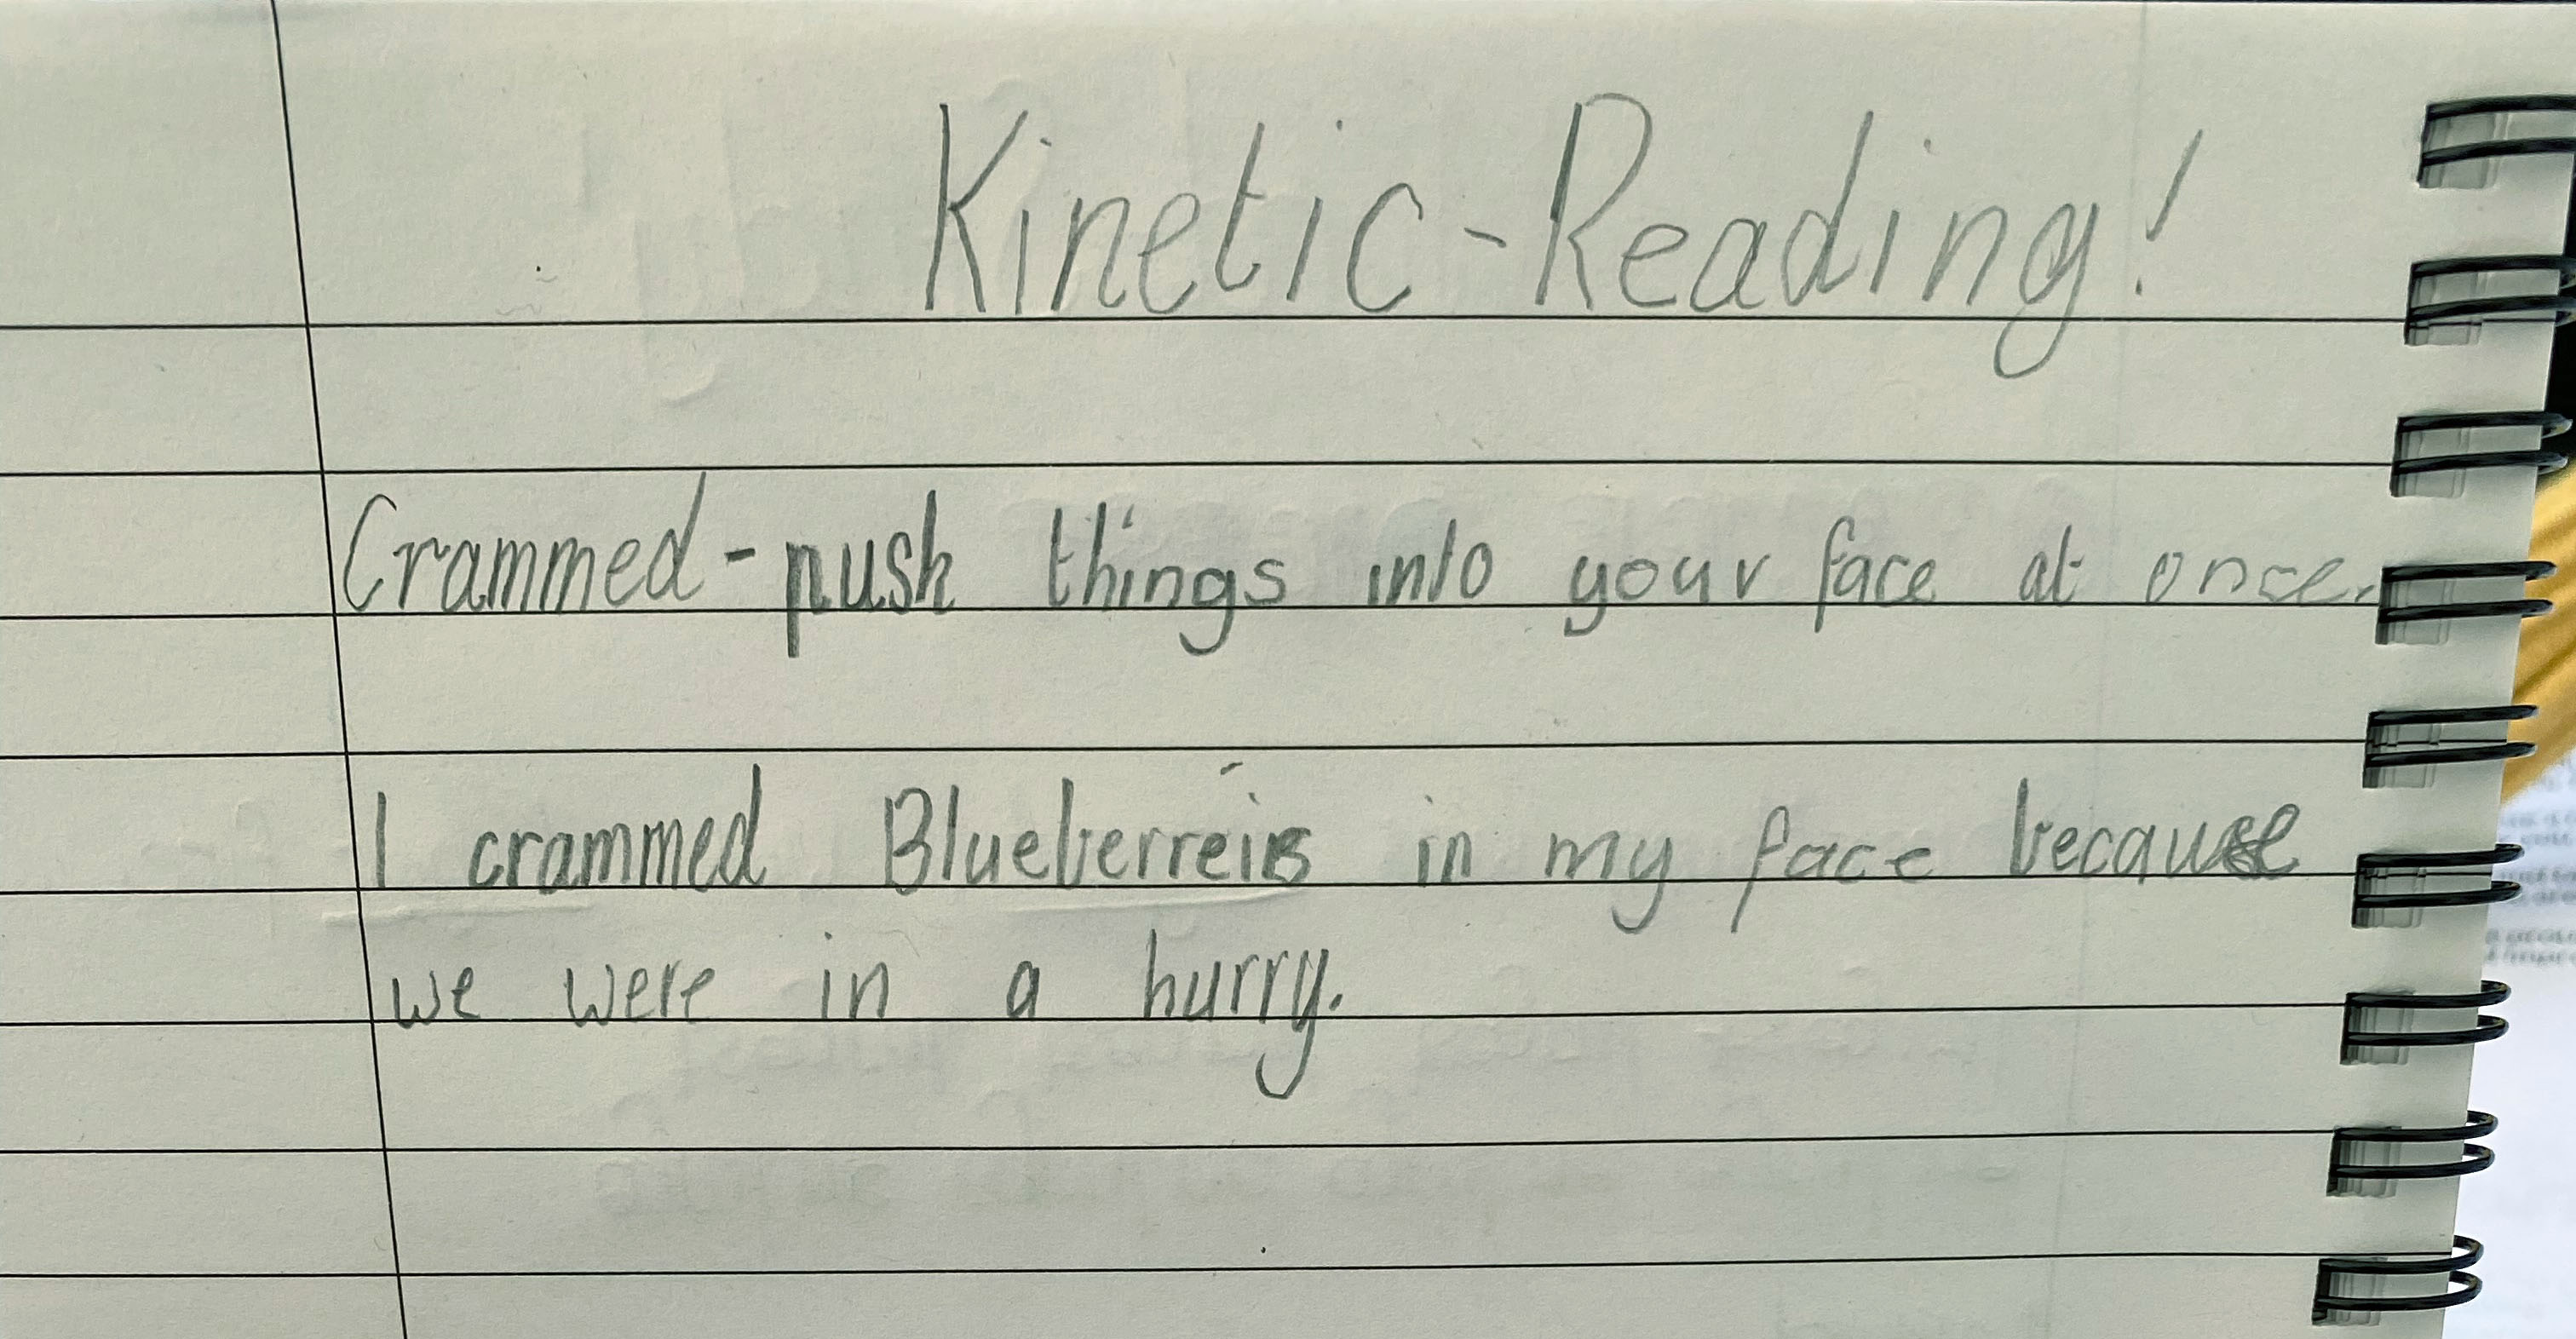 Kinetic-Reading!
Crammed-push things into your face at once.
I crammed Blueberreis in my face because
we were in a hurry.